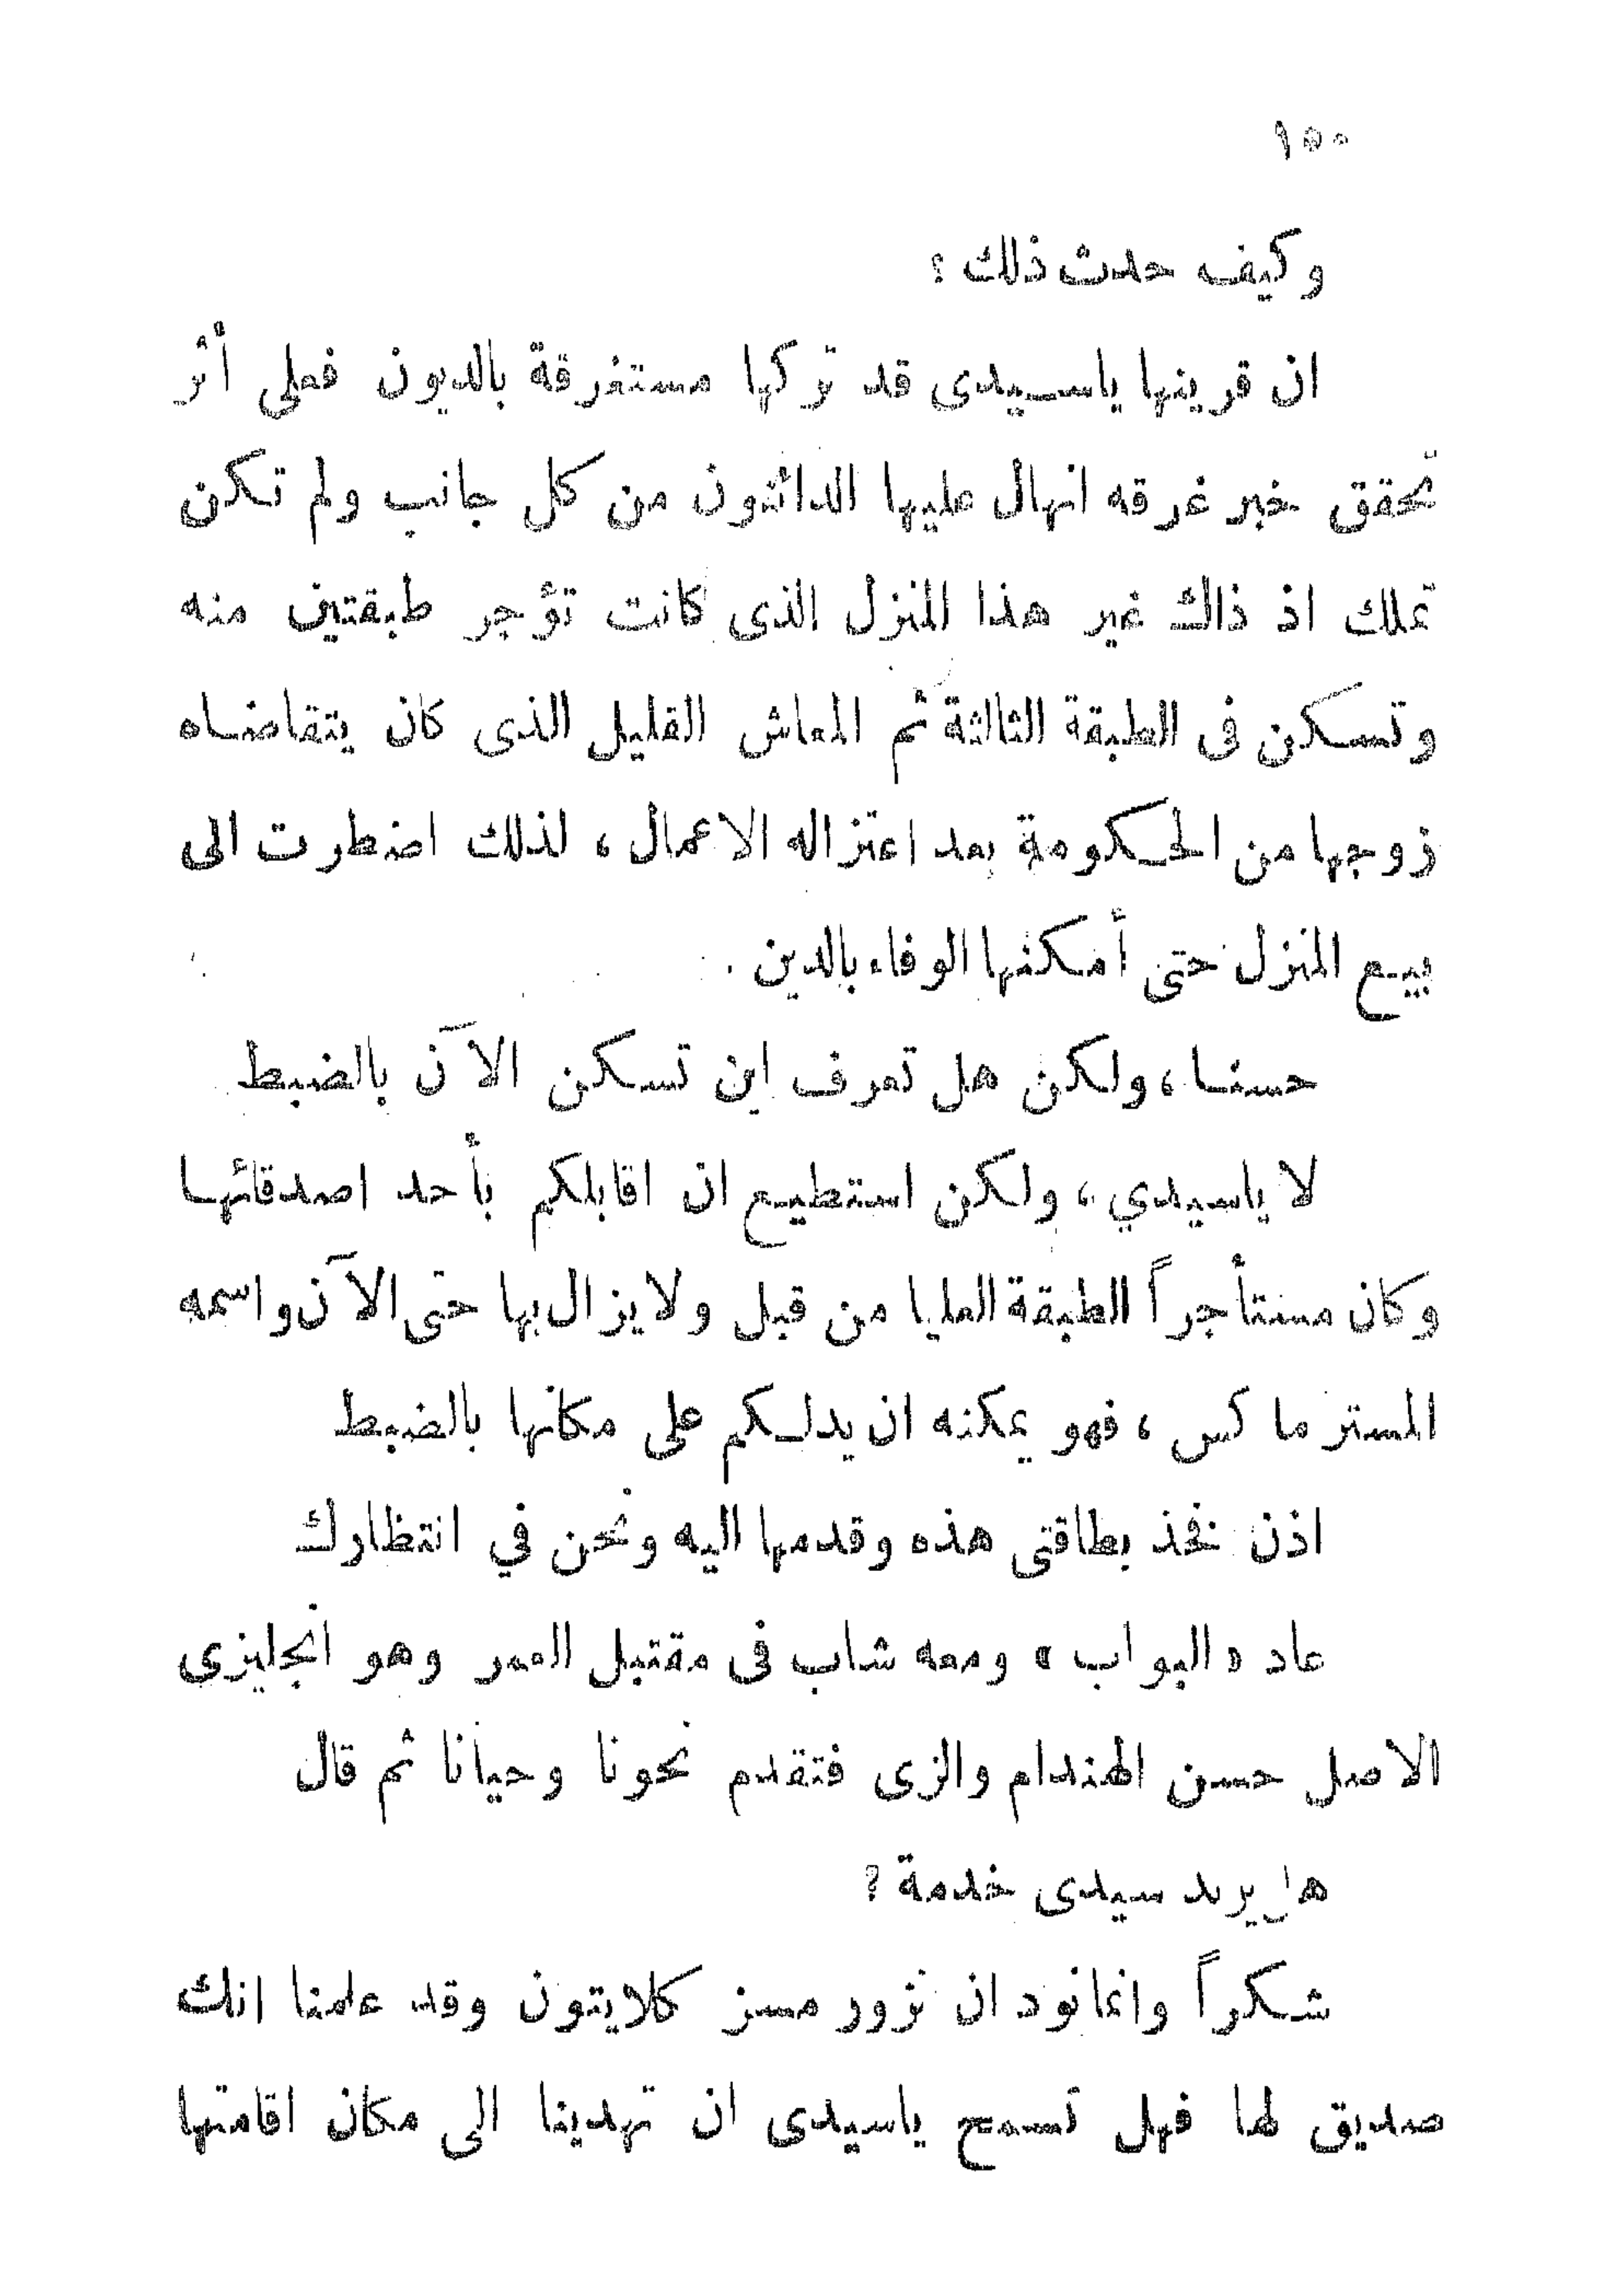 ١٥٠
وكيف حدث ذلك ؟
ان قرينها ياسيدى قد تركها مستغرقة بالديون فعلى أثر
تحقق خبر غرقه انهال عليها الدائنون من كل جانب ولم تكن
تملك اذ ذاك غير هذا المنزل الذى كانت تؤجر طبقتين منه
وتسكن فى الطبقة الثالثة ثم المعاش القليل الذى كان يتقاضاه
زوجها من الحكومة بعد اعتزاله الاعمال ، لذلك اضطرت الى
بيع المنزل حتى أمكنها الوفاء بالدين .
حسنا ، ولكن هل تعرف اين تسكن الآن بالضبط
لا ياسيدي ، ولكن استطيع ان اقابلكم بأحد اصدقائها
وكان مستأجراً الطبقة العليا من قبل ولا يزال بها حتى الآن واسمه
المستر ماكس ، فهو يمكنه ان يدلكم على مكانها بالضبط
اذن فخذ بطاقتى هذه وقدمها اليه ونحن في انتظارك
عاد « البواب » ومعه شاب فى مقتبل العمر وهو انجليزى
الاصل حسن الهندام والزى فتقدم نحونا وحيانا ثم قال
هل يريد سيدى خدمة ؟
شكراً وانما نود ان نزور مسز كلايتون وقد علمنا انك
صديق لها فهل تسمح ياسيدى ان تهدينا الى مكان اقامتها